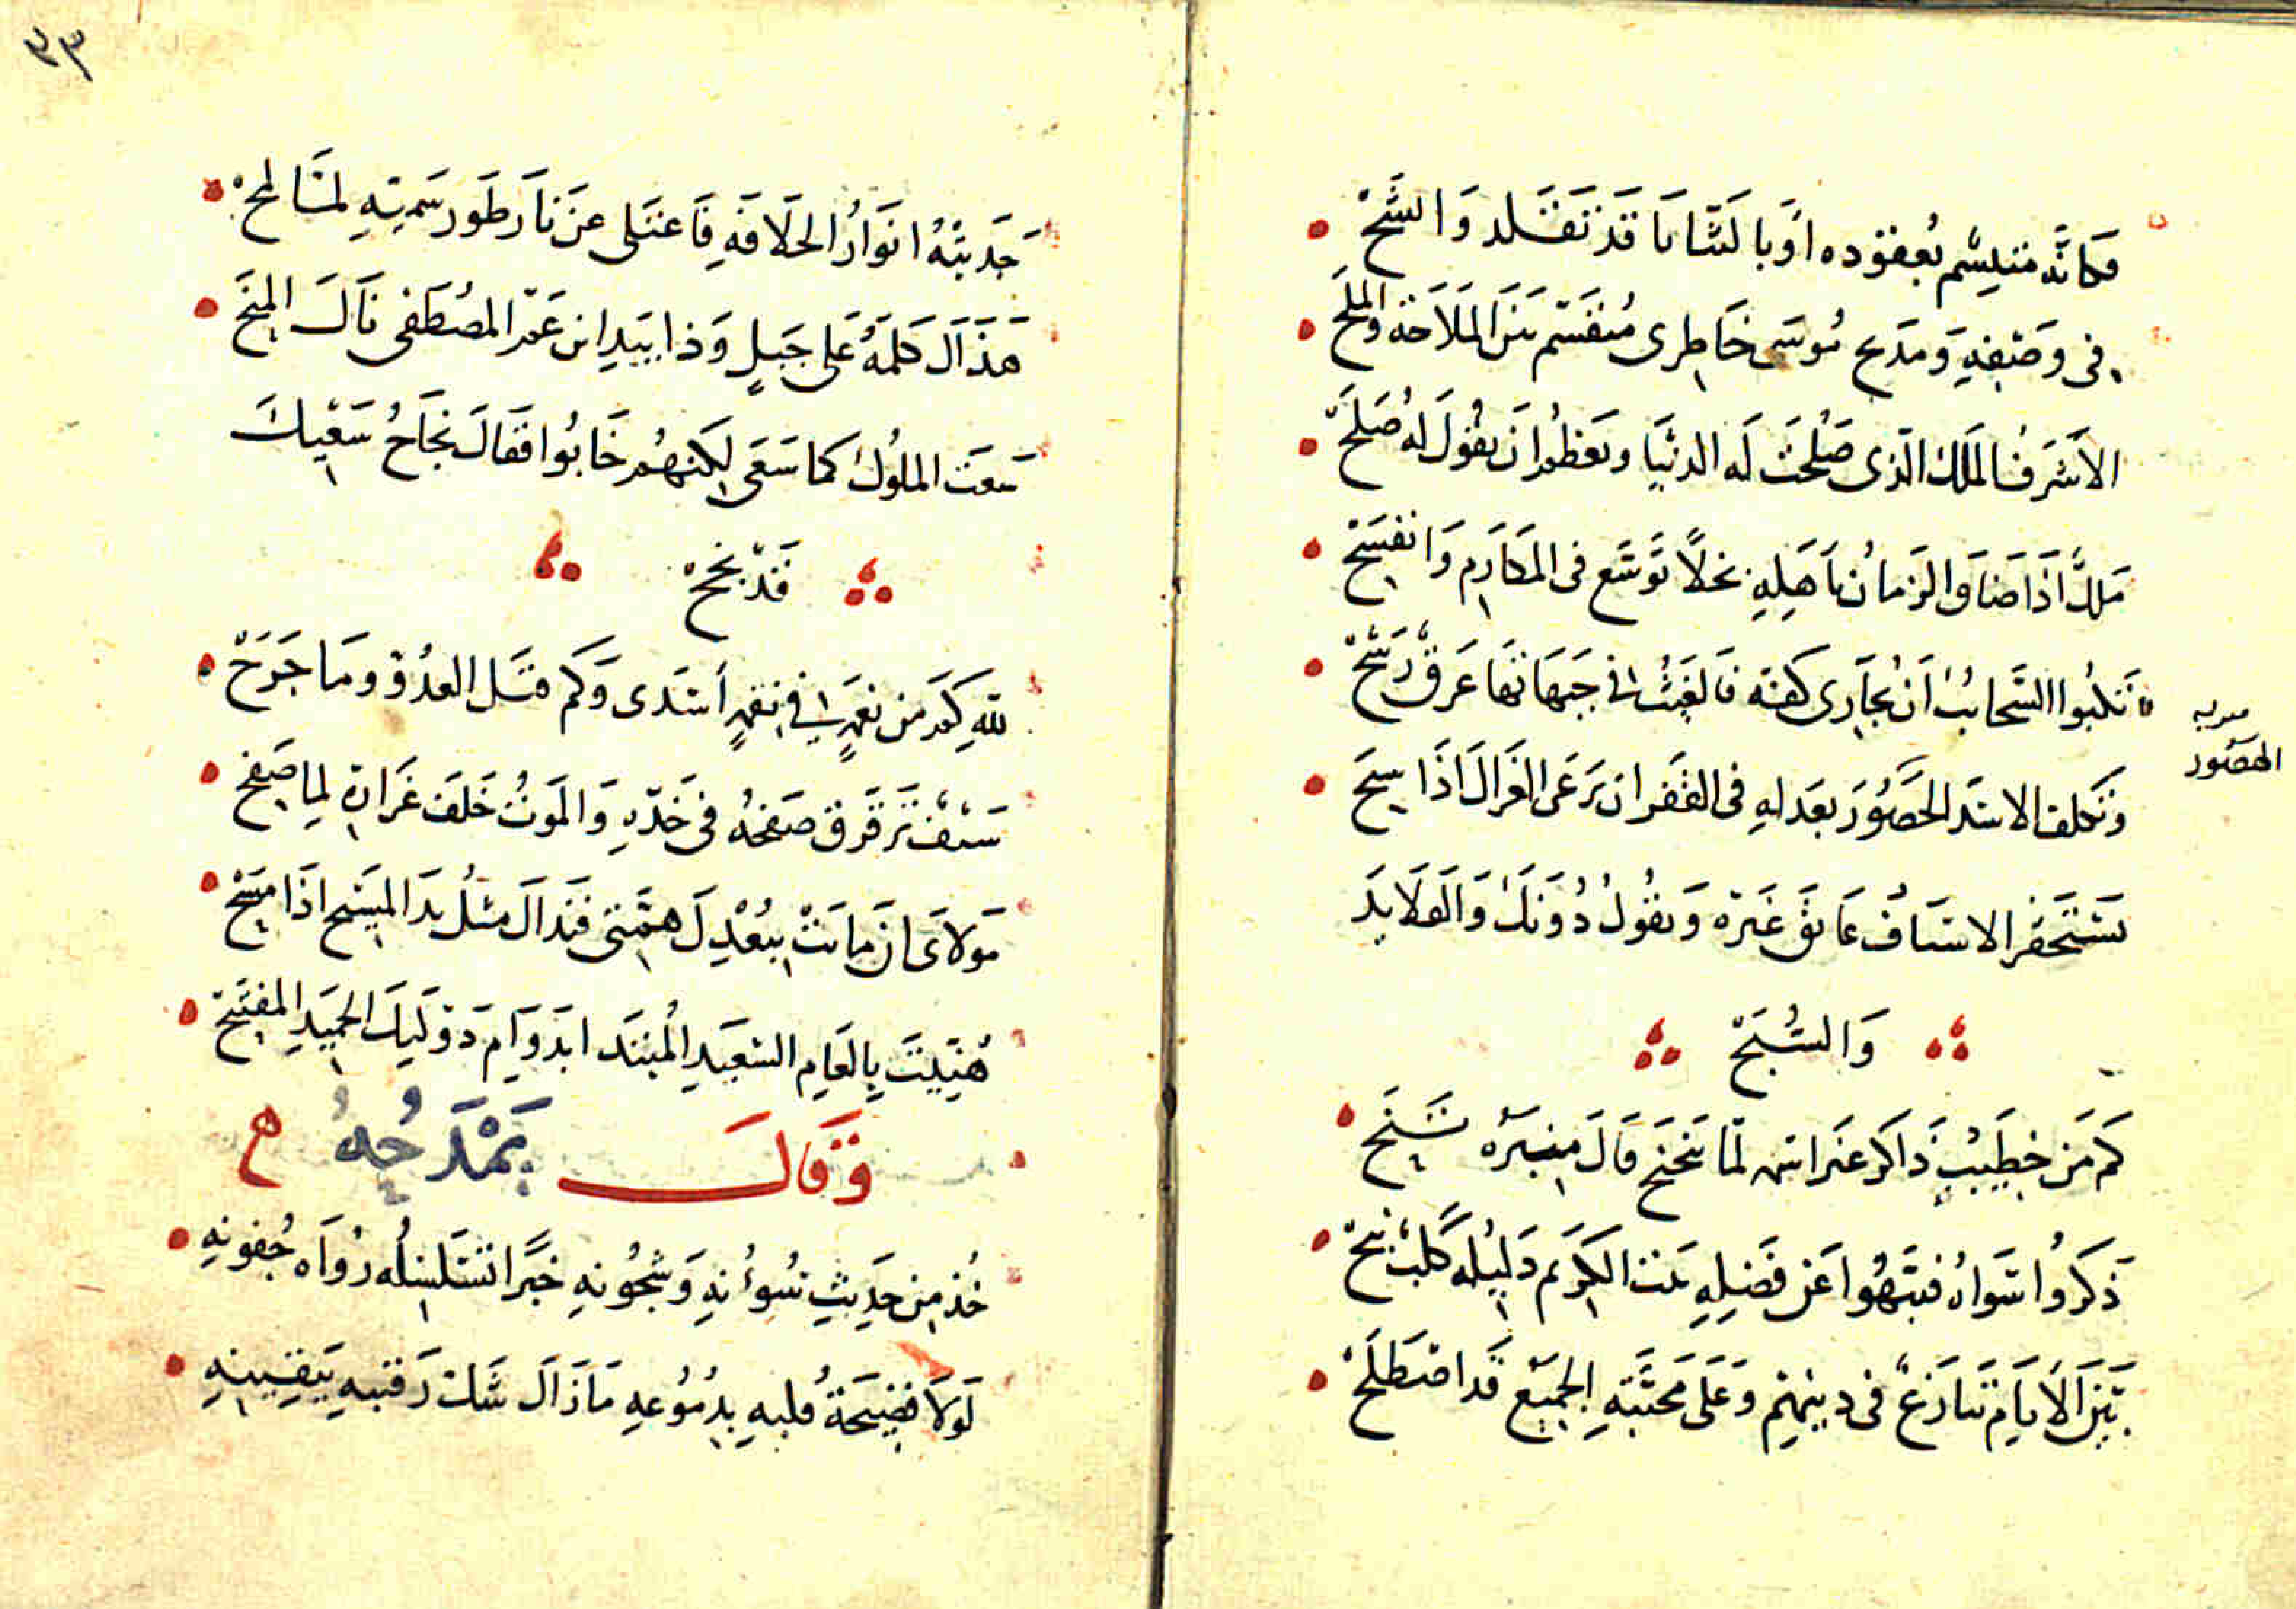 فكأنه متبسم بعقوده أو بالثنايا قد تقلد واتشح
في وصفه ومديح موسى خاطري متقسم بين الملاحة والملح
الأشرف الملك الذي صلحت له الدنيا ويعظم ان يقول له صلح
ملك اذا ضاق الزمان باهله بخلا توسع في المكارم وانفسح
تكبوا السحائب ان تجاري كفه فالغيث في جبهاتها عرق رشح
وتكلف الاسد الحصور بعدله في القفر ان يرعى الغزال اذا سح
الهصور
يستحقر الاسياف عاتق غيره ويقول دونك والقلايد
والسبح
كم من خطيب ذاكر عنه اسمه لما تنحنح قال منبره تنح
ذكروا سواه فنبهوا عن فضله بنت الكريم دليله كلب نبح
بين الانام تنازع في دينهم وعلى محبته الجميع قد اصطلح
٣٣
جذبته انوار الخلافة فاعتلى عن نار طور سميه لما لمح
هذاك كلمه على جبل وذا بيد ابن عم المصطفى نال المنح
سعت الملوك كما سعى لكنهم خابوا فقال نجاح سعيك
قد نجح
لله كم من نعمة في نقمة أسدى وكم قتل العدو وما جرح
سيف ترقرق صفحه في خده والموت خلف غراره لما صفح
مولاي ان ماتت ببعدك همتي فنداك مثل يد المسيح اذا مسح
هنيت بالعام السعيد المبتدا بدوام دولتك الحميد المفتتح
وقال يمدحه
خذ من حديث شؤنه وشجونه خبرا تسلسله رواه جفونه
لولا فضيحة قلبه بدموعه ما زال شك رقيبه بيقينه